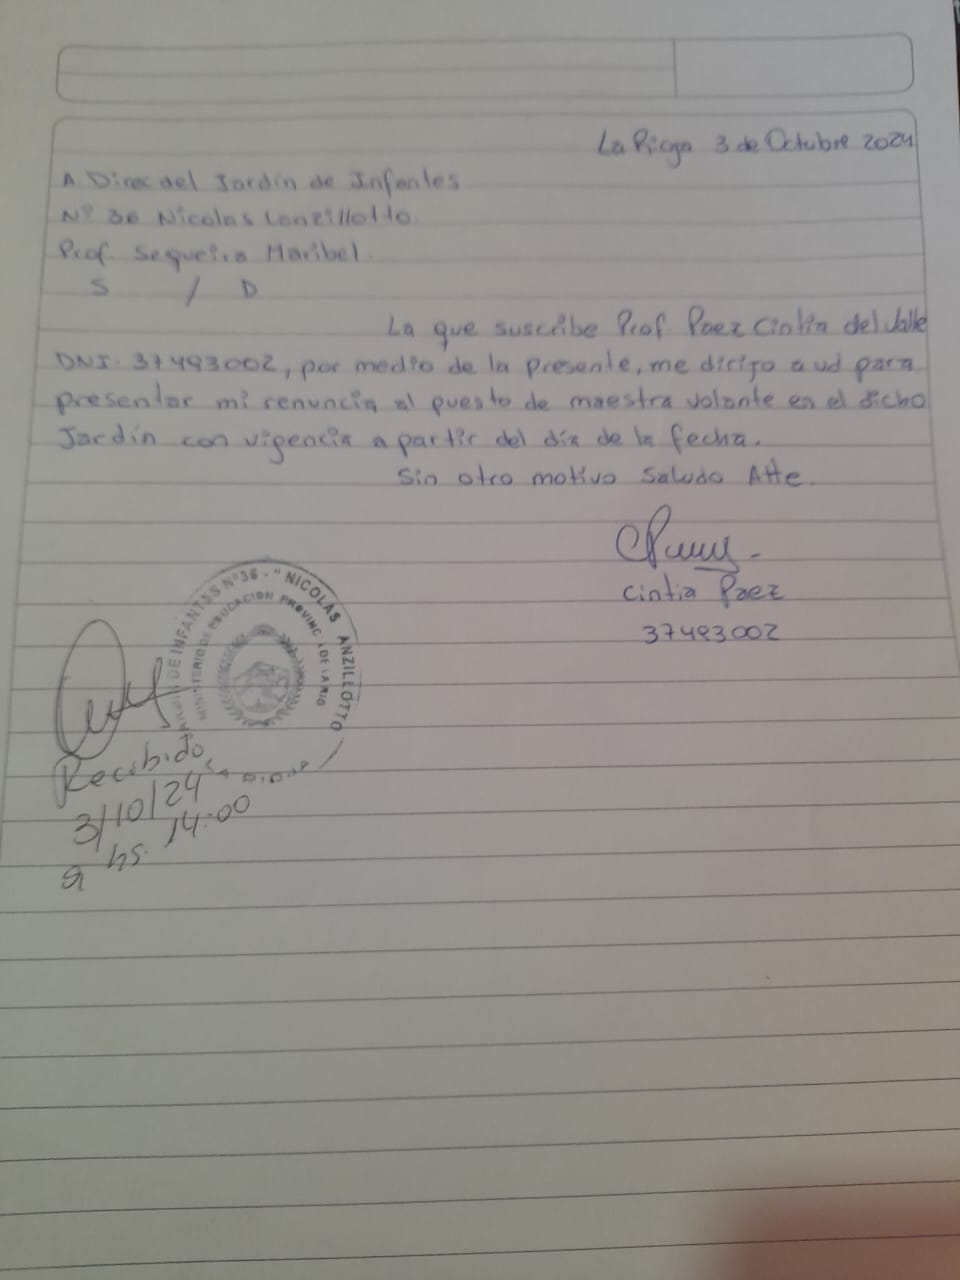 La Rioja 3 de Octubre 2024
A Direc del Jardín de Infantes
Nº 36 Nicolas Lanzillotto
Prof. Sequeira Maribel
S / D
La que suscribe Prof Paez Cintia del Valle
DNI: 37493002, por medio de la presente, me dirijo a ud para
presentar mi renuncia al puesto de maestra volante en el dicho
Jardín con vigencia a partir del día de la fecha.
Sin otro motivo Saludo Atte.
Cintia Paez
37493002
DE INFANTES Nº36 - "NICOLAS ANZILLOTTO
MINISTERIO DE EDUCACION PROVINC DE LA RIO
Recibido
3/10/24
a hs. 14:00